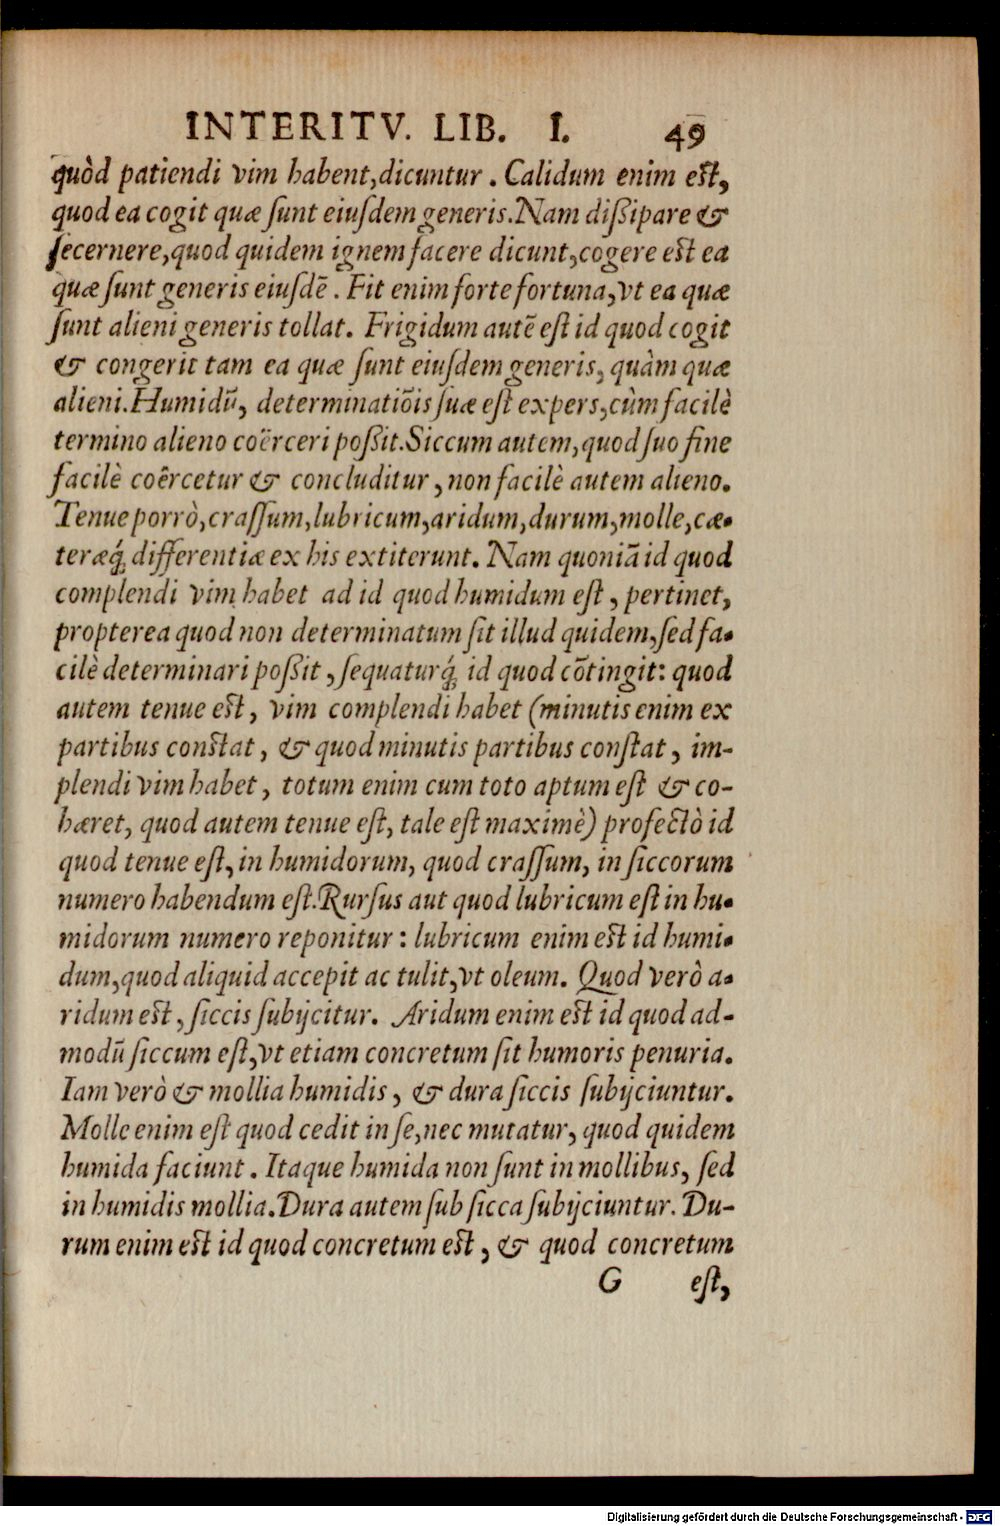 INTERITV. LIB. I. 49
quòd patiendi vim habent, dicuntur. Calidum enim est,
quod ea cogit quæ sunt eiusdem generis. Nam dißipare &
secernere, quod quidem ignem facere dicunt, cogere est ea
quæ sunt generis eiusdē. Fit enim forte fortuna, vt ea quæ
sunt alieni generis tollat. Frigidum autē est id quod cogit
& congerit tam ea quæ sunt eiusdem generis, quàm quæ
alieni. Humidū, determinatiōis suæ est expers, cùm facilè
termino alieno coërceri poßit. Siccum autem, quod suo fine
facilè coërcetur & concluditur, non facilè autem alieno.
Tenue porrò, crassum, lubricum, aridum, durum, molle, cæ-
teræq́; differentiæ ex his extiterunt. Nam quoniā id quod
complendi vim habet ad id quod humidum est, pertinet,
propterea quod non determinatum sit illud quidem, sed fa-
cilè determinari poßit, sequaturq́; id quod cōtingit: quod
autem tenue est, vim complendi habet (minutis enim ex
partibus constat, & quod minutis partibus constat, im-
plendi vim habet, totum enim cum toto aptum est & co-
hæret, quod autem tenue est, tale est maximè) profectò id
quod tenue est, in humidorum, quod crassum, in siccorum
numero habendum est. Rursus aut quod lubricum est in hu-
midorum numero reponitur: lubricum enim est id humi-
dum, quod aliquid accepit ac tulit, vt oleum. Quod verò a-
ridum est, siccis subijcitur. Aridum enim est id quod ad-
modū siccum est, vt etiam concretum sit humoris penuria.
Iam verò & mollia humidis, & dura siccis subijciuntur.
Molle enim est quod cedit in se, nec mutatur, quod quidem
humida faciunt. Itaque humida non sunt in mollibus, sed
in humidis mollia. Dura autem sub sicca subijciuntur. Du-
rum enim est id quod concretum est, & quod concretum
G est,
Digitalisierung gefördert durch die Deutsche Forschungsgemeinschaft - DFG